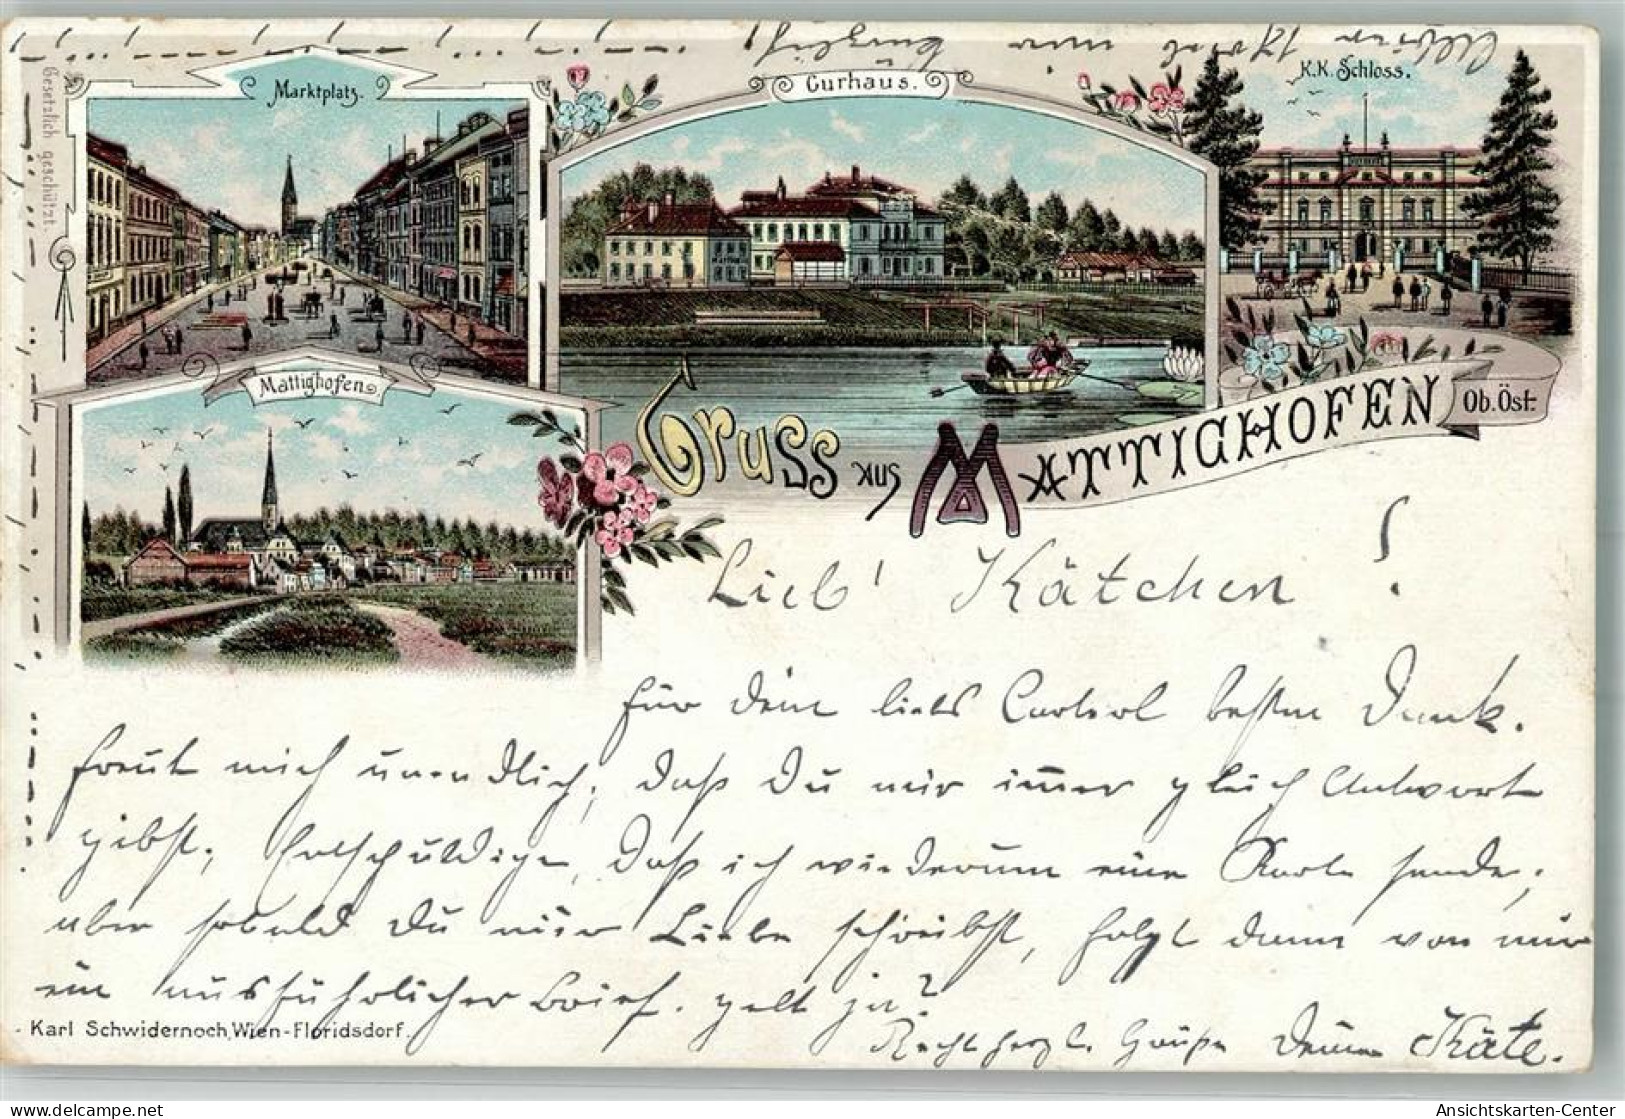 Gesetzlich geschützt.
Marktplatz.
Curhaus.
K.K. Schloss.
Mattighofen
Gruss aus MATTIGHOFEN Ob. Öst.
Lieb' Kätchen!
für Dein liebs Carterl besten Dank.
freut mich unendlich, daß Du mir immer gleich Antwort
gibst. Entschuldige, daß ich wiederum eine Karte sende;
aber sobald Du mir Liebe schreibst, folgt dann von mir
ein ausführlicher Brief. gelt ja?
Recht herzl. Grüße Deine Käte.
Karl Schwidernoch, Wien-Floridsdorf.
Ansichtskarten-Center